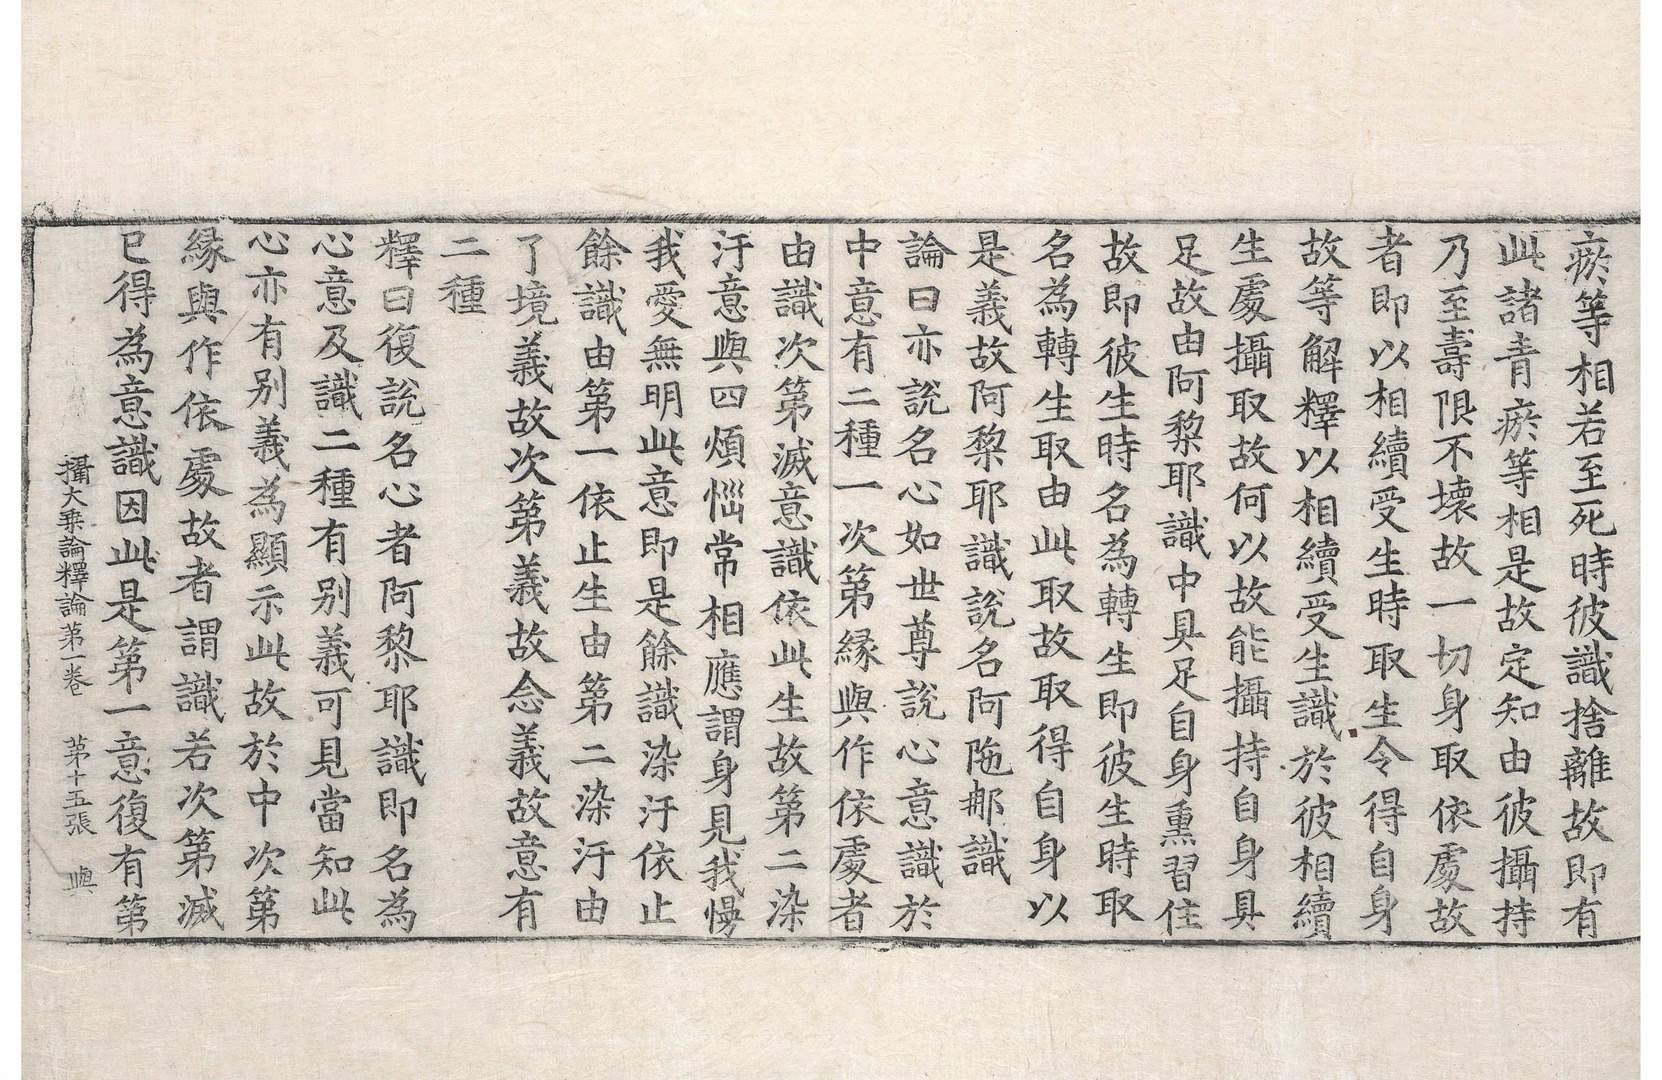 瘀等相若至死時彼識捨離故即有
此諸青瘀等相是故定知由彼攝持
乃至壽限不壞故一切身取依處故
者即以相續受生時取生令得自身
故等解釋以相續受生識於彼相續
生處攝取故何以故能攝持自身具
足故由阿黎耶識中具足自身熏習住
故即彼生時名為轉生即彼生時取
名為轉生取由此取故取得自身以
是義故阿黎耶識說名阿陁那識
論曰亦說名心如世尊說心意識於
中意有二種一次第緣與作依處者
由識次第滅意識依此生故第二染
汙意與四煩惱常相應謂身見我慢
我愛無明此意即是餘識染汙依止
餘識由第一依止生由第二染汙由
了境義故次第義故念義故意有
二種
釋曰復說名心者阿黎耶識即名為
心意及識二種有別義可見當知此
心亦有別義為顯示此故於中次第
緣與作依處故者謂識若次第滅
已得為意識因此是第一意復有第
攝大乘論釋論第一卷 第十五張 與